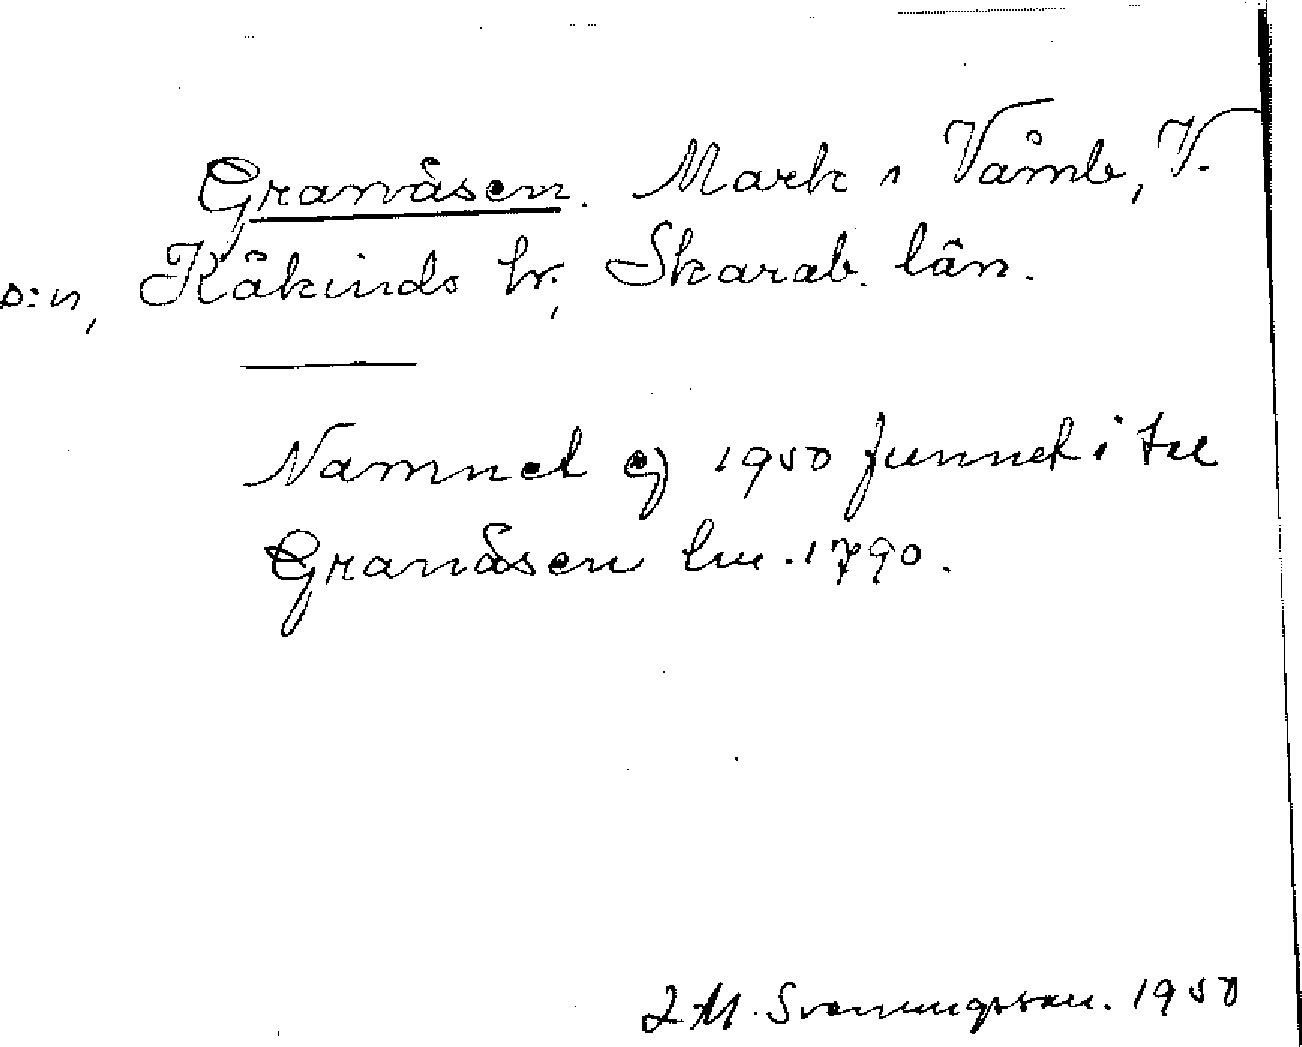 Granåsen. Mark i Våmb, V.
s:n, Kåkinds hr, Skarab. län.
Namnet ej 1950 funnet i tel
Granåsen lm. 1790.
Svenningsson. 1950